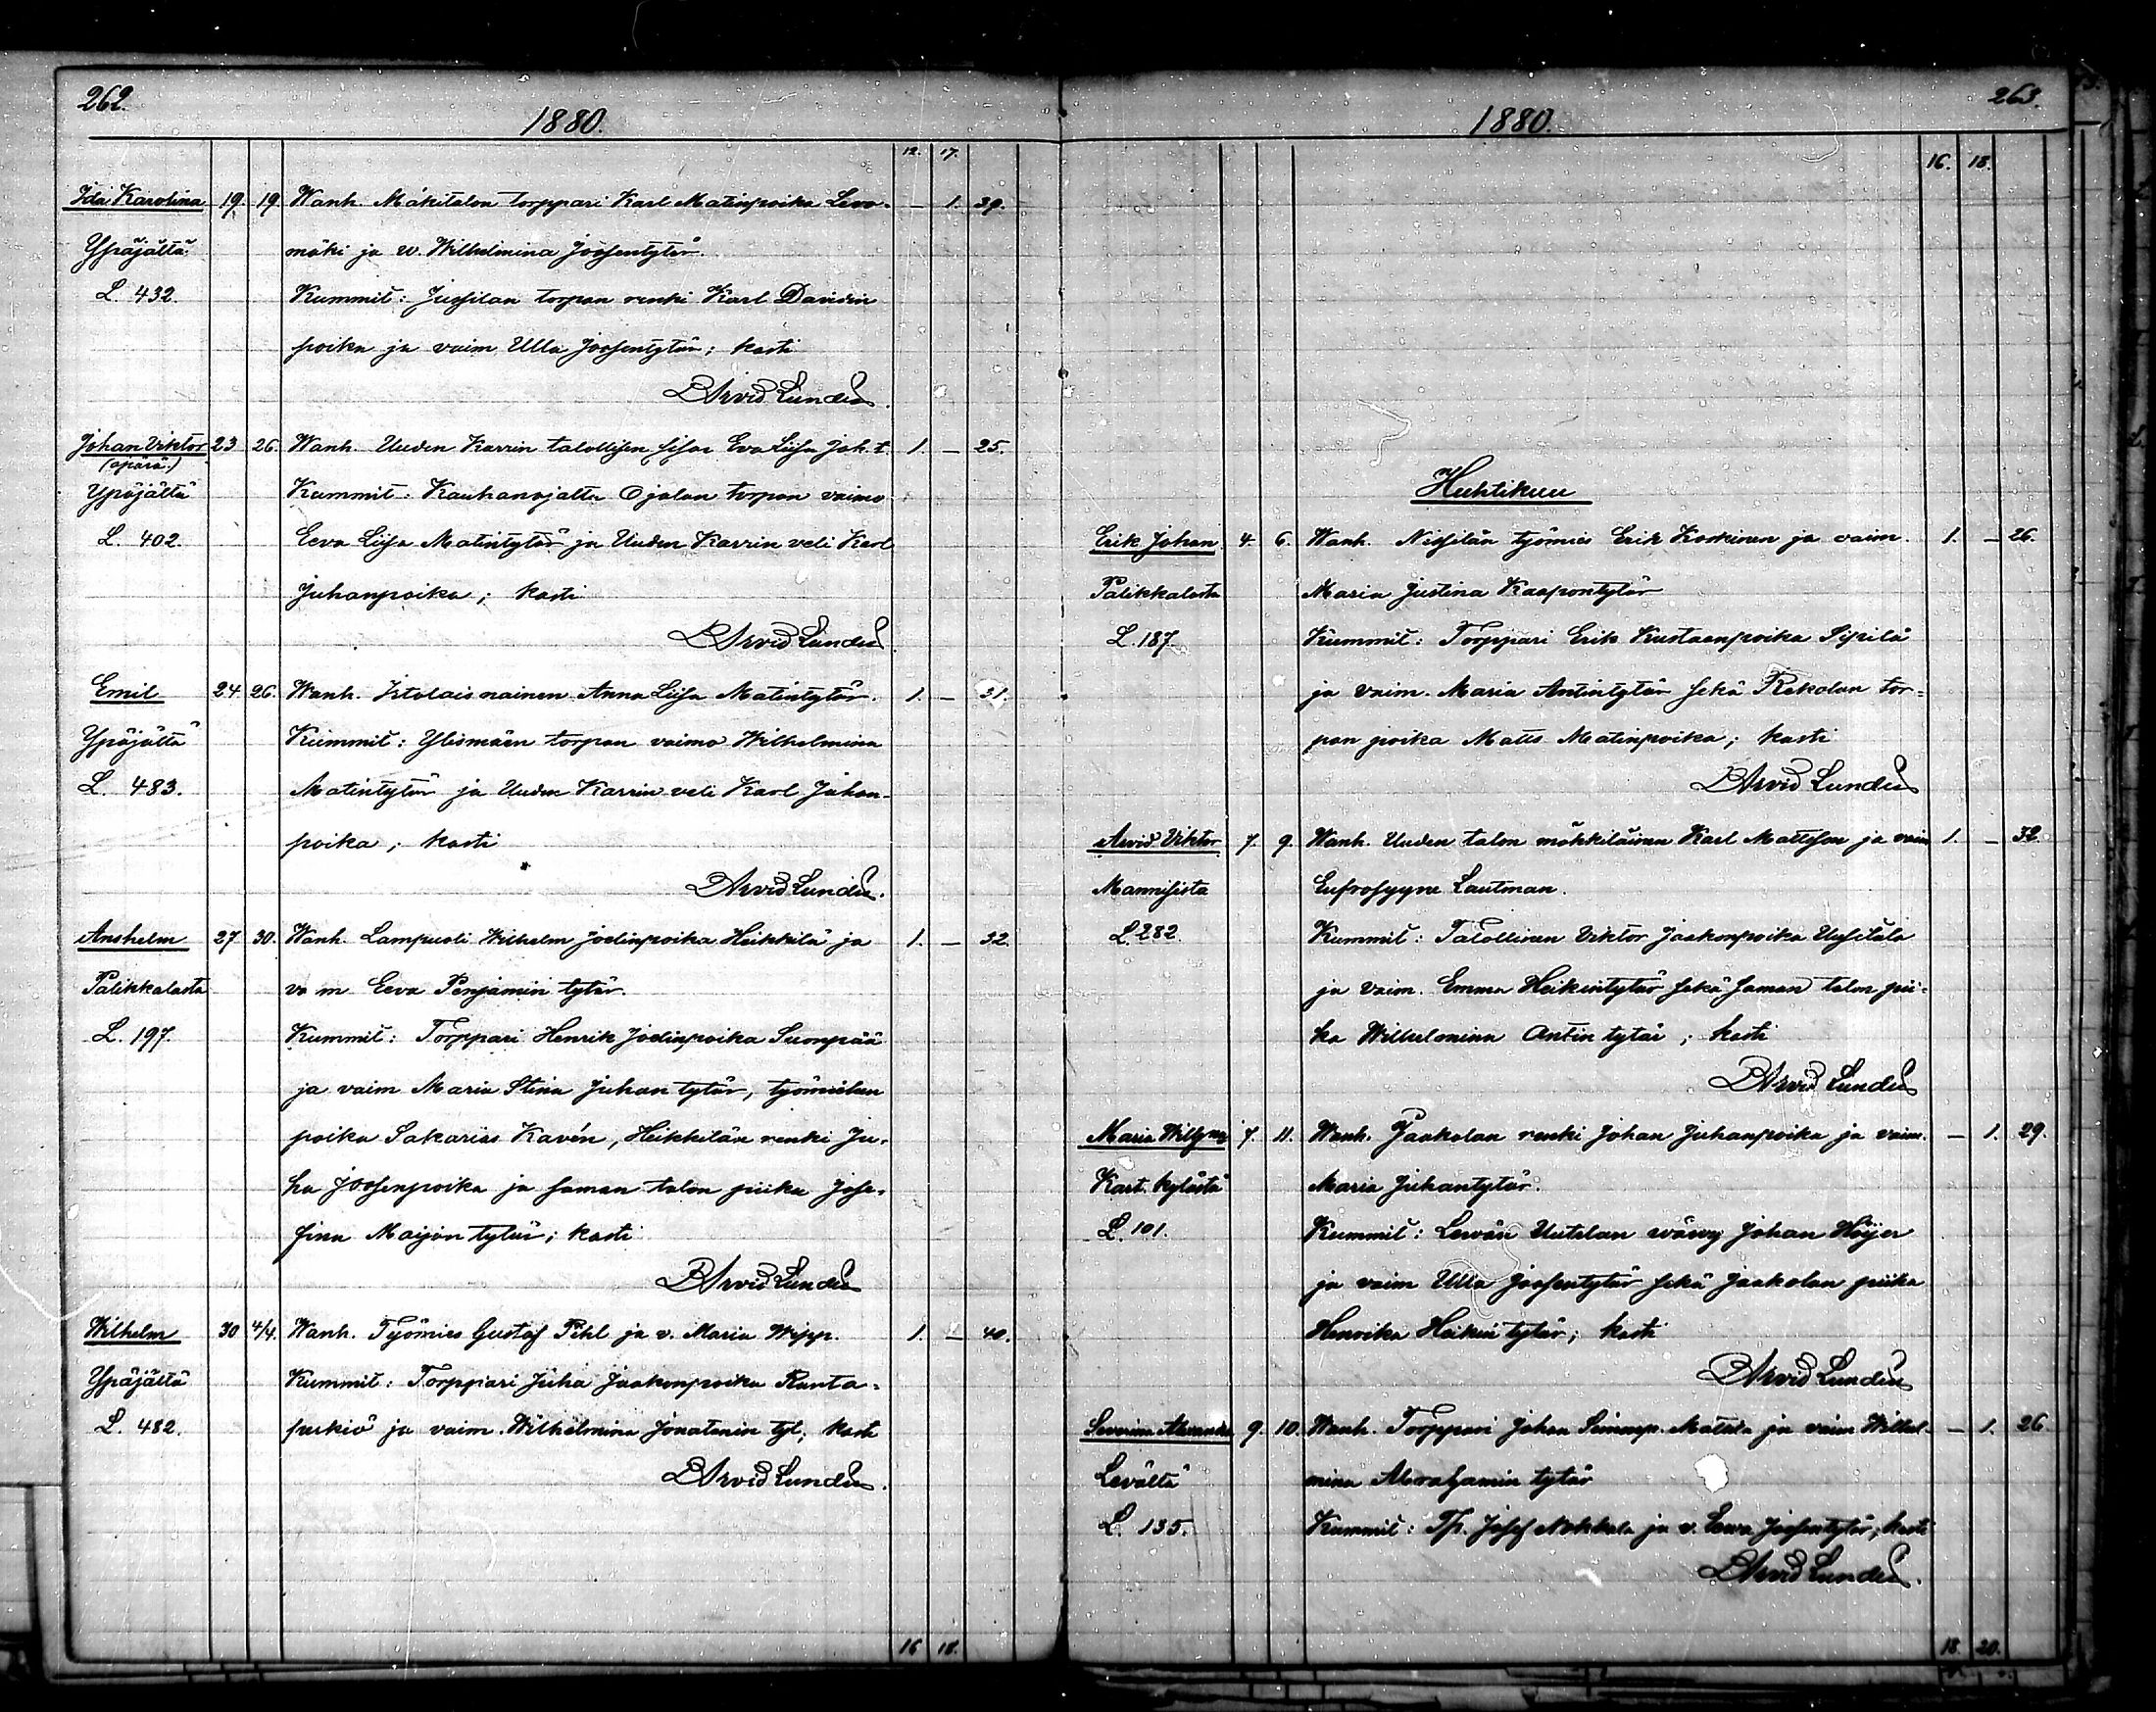 262.
1880.
12. 17.
Ida Karolina 19. 19. Wanh. Mäkitalon torppari Karl Matinpoika Levo- — 1. 39.
Ypäjältä mäki ja w. Wilhelmina Joosentytär.
L. 432. Kummit: Jussilan torpan renki Karl Davidin
poika ja vaim Ulla Joosentytär; kasti
Arvid Lundén
Johan Viktor 23 26. Wanh. Uuden Karrin talollisen sisar Eva Liisa Joh. t. 1. — 25.
(äpärä)
Ypäjältä Kummit: Kauhanojalta Ojalan torpan vaimo
L. 402. Eeva Liisa Matintytär ja Uuden Karrin veli Karl
Juhanpoika; kasti
Arvid Lundén
Emil 24 26. Wanh. Itelais nainen Anna Liisa Matintytär. 1. — 31.
Ypäjältä Kummit: Ylismäen torpan vaimo Wilhelmina
L. 483. Matintytär ja Uuden Karrin veli Karl Juhan-
poika; kasti
Arvid Lundén.
Anshelm 27 30. Wanh. Lampuoti Wilhelm Joelinpoika Heikkilä ja 1. — 32.
Palikkalasta va m Eeva Penjamin tytär.
L. 197. Kummit: Torppari Henrik Joelinpoika Suonpää
ja vaim Maria Stina Juhan tytär, työmiehen
poika Sakarias Kavén, Heikkilän renki Ju-
ha Joosenpoika ja saman talon piika Jose-
fina Maijan tytär; kasti
Arvid Lundén
Wilhelm 30 4/4. Wanh. Työmies Gustaf Pihl ja v. Maria Wipp. 1. — 40.
Ypäjältä Kummit: Torppari Juha Jaakonpoika Ranta-
L. 482. perkiö ja vaim. Wilhelmina Jonatanin tyt; kasti
Arvid Lundén.
16 18.
263.
1880.
16. 18.
Huhtikuu
Erik Johan 4. 6. Wanh. Nissilän työmies Erik Koskinen ja vaim. 1. — 26.
Palikkalasta Maria Justina Kaapontytär
L. 187. Kummit: Torppari Erik Kustaanpoika Sipilä
ja vaim. Maria Antintytär sekä Rekolan tor-
pan poika Matts Matinpoika; kasti
Arvid Lundén
Arvid Viktor 7. 9. Wanh. Uuden talon mökkiläinen Karl Mattsson ja vaim 1. — 32.
Mannisista Eufrosyyne Lautman.
L. 282. Kummit: Talollinen Viktor Jaakonpoika Uusitalo
ja vaim. Emma Heikintytär sekä saman talon pii-
ka Wilhelmina Antin tytär; kasti
Arvid Lundén
Maria 7. 11. Wanh. Jaakolan renki Johan Juhanpoika ja vaim. — 1. 29.
Kart. kylästä Maria Juhantytär.
L. 101. Kummit: Levän Uutelan wäwy Johan Höijer
ja vaim Ulla Joosentytär sekä Jaakolan piika
Henrika Heikin tytär; kasti
Arvid Lundén
Severina 9. 10. Wanh. Torppari Johan Mattila ja vaim Wilhel- — 1. 26.
Levältä mina Abrahamin tytär
L. 135. Kummit: Tp. Josef Nokkala ja v. Eewa Joosentytär; kasti
Arvid Lundén.
18. 20.